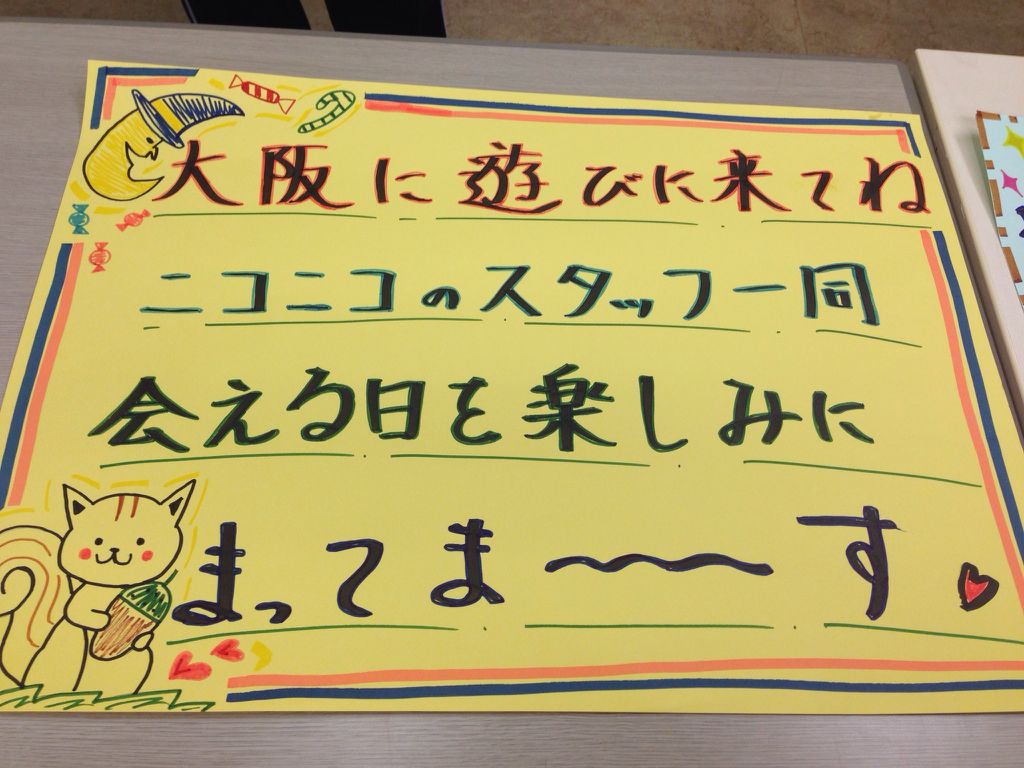 大阪に遊びに来てね
ニコニコのスタッフ一同
会える日を楽しみに
まってま〜〜す